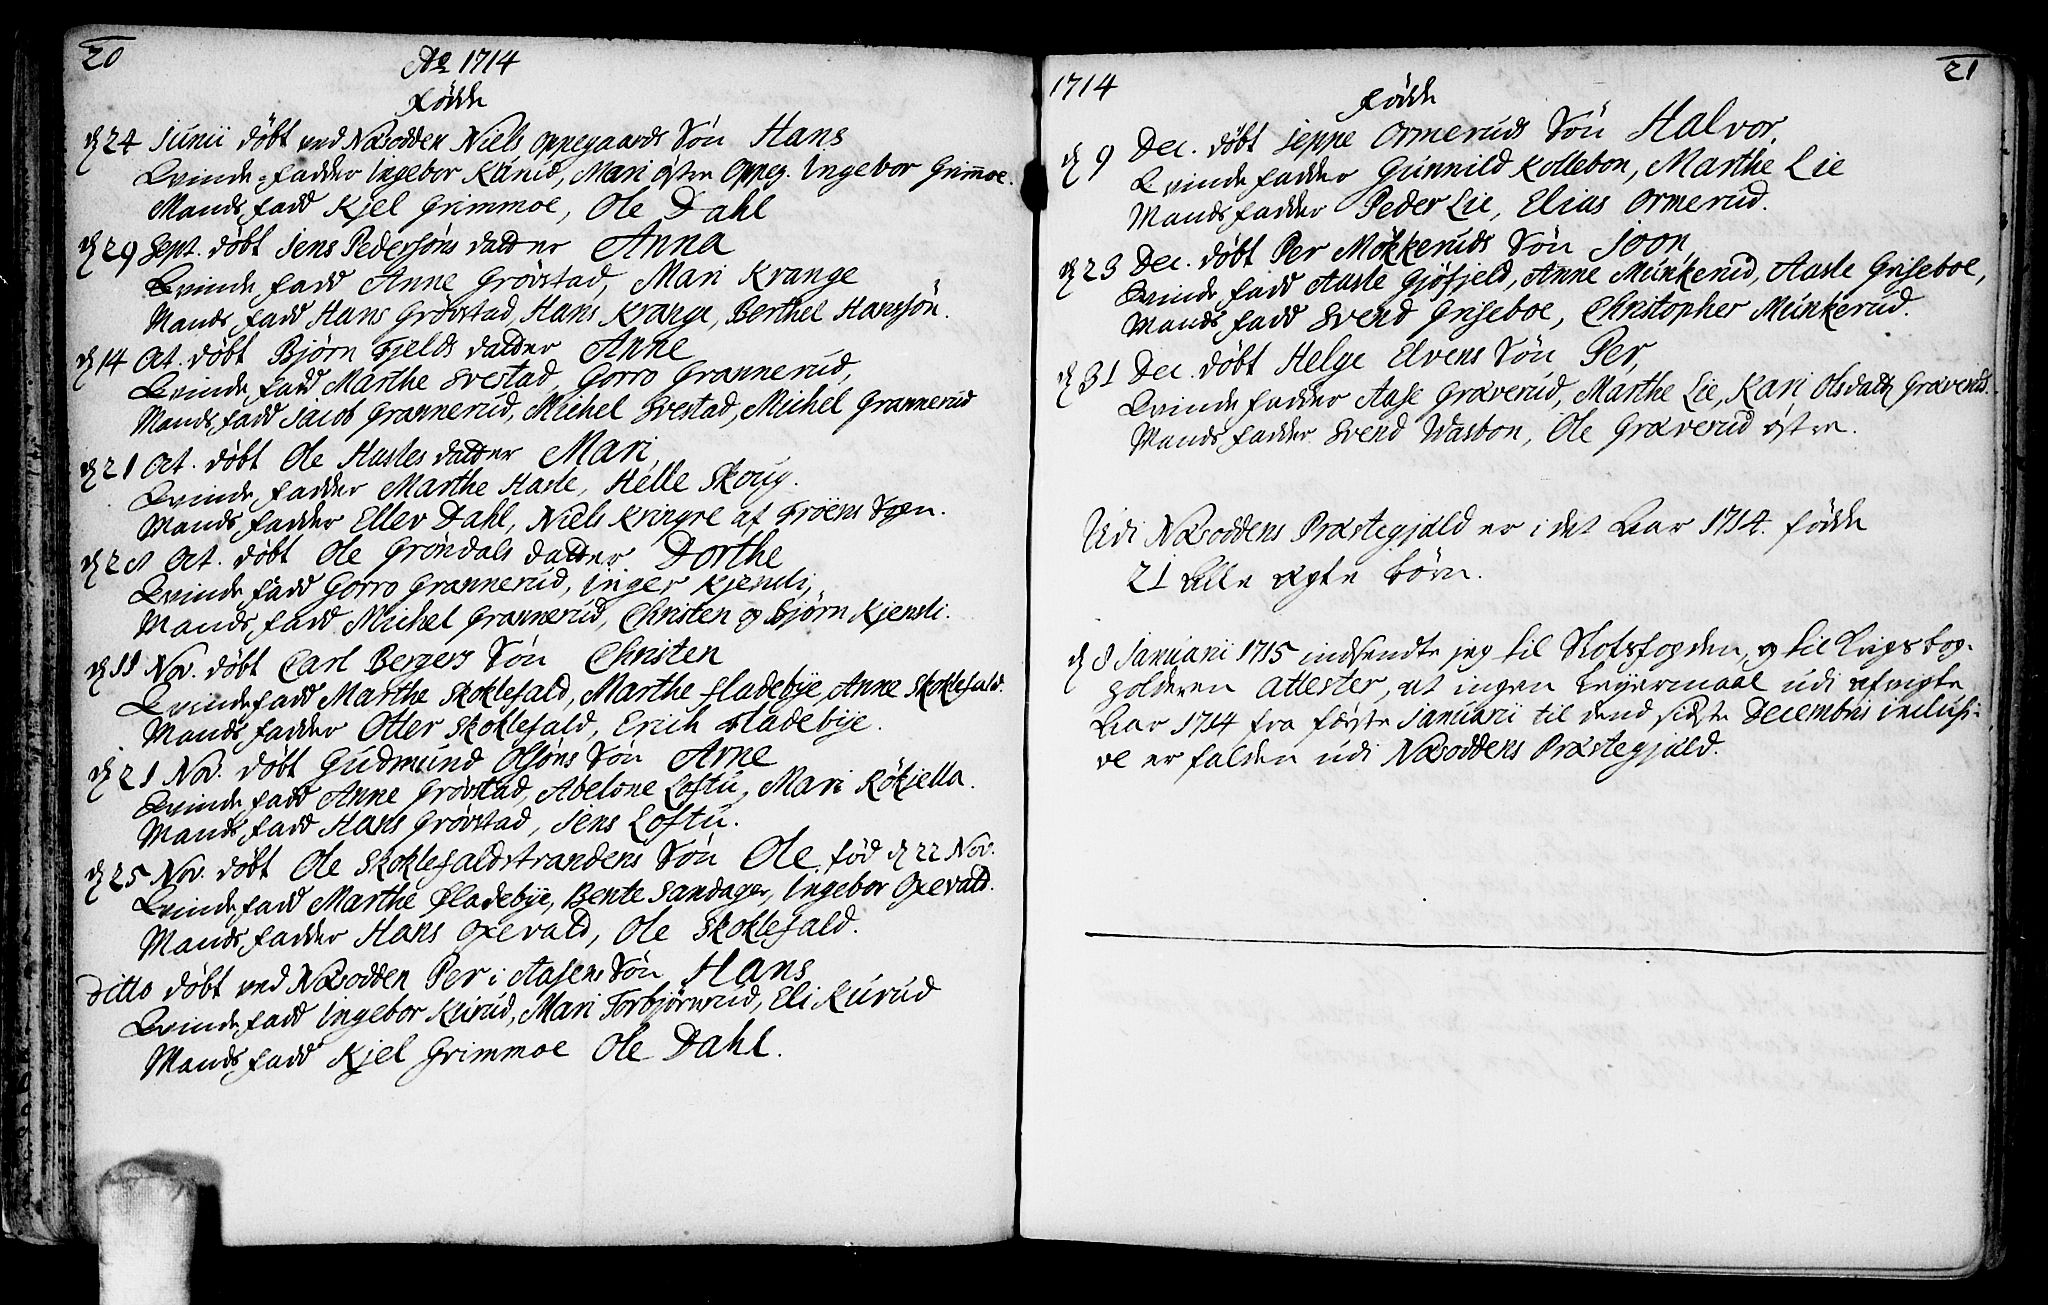 20
Ao 1714
Fødde
d 24 Junii døbt ved Næsodden Niels Oppegaards Søn Hans
Qvinde-fadder Ingebor Kurud, Mari østre Oppeg. Ingebor Grimmoe.
Mands fadd Kjel Grimmoe, Ole Dahl
d 29 Sept. døbt Jens Pedersøns datter Anna
Qvinde fadd Anne Grøvstad, Mari Krange
Mands fadd Hans Grøvstad, Hans Krange, Berthel Hanssøn.
d 14 Oct. døbt Bjørn Fjelds datter Anne
Qvinde fadd Marthe Svestad, Gorro Grannerud,
Mands fadd Jacob Grannerud, Michel Svestad, Michel Grannerud
d 21 Oct. døbt Ole Hasles datter Mari
Qvinde fadder Marthe Hasle, Helle Skoug.
Mands fadder Ellev Dahl, Niels Kringre af Frøens Sogn.
d Oct. døbt Ole Grøndals datter Dorthe
Qvinde fadd Gorro Grannerud, Inger Kjensli,
Mands fadd Michel Grannerud, Christen og Bjørn Kjensli.
d 11 Nov. døbt Carl Bergers Søn Christen
Qvindefadd Marthe Skoklefald, Marthe fladebye, Anne Skoklefald.
Mands fadder Otter Skoklefald, Erich Fladebye.
d 21 Nov. døbt Gudmund Olsøns Søn Arne
Qvinde fadd Anne Grøvstad, Abelone Loftu, Mari Røkjella.
Mands fadd Hans Grøvstad, Jens Loftu.
d 25 Nov. døbt Ole Skoklefaldstrandens Søn Ole, fød d 22 Nov.
Qvinde fadd Marthe Fladebye, Bente Sandager, Ingebor Oxevald.
Mands fadder Hans Oxevald, Ole Skoklefald.
Ditto døbt ved Næsodden Per i Aasens Søn Hans
Qvinde fadd Ingebor Kurud, Mari Torbjørnrud, Eli Kurud
Mands fadd Kjel Grimmoe Ole Dahl.
1714
21
Fødde
d 9 Dec. døbt Jeppe Ormeruds Søn Halvor,
Qvinde fadder Gunnild Kollebon, Marthe Lie
Mands fadder Peder Lie, Elias Ormerud.
d 23 Dec. døbt Per Mökkeruds Søn Joon,
Qvinde fadd Aasle Gjøfjeld, Anne Munkerud, Aasle Griseboe,
Mands fadd Svend Griseboe, Christopher Munkerud.
d 31 Dec. døbt Helge Elvens Søn Per,
Qvinde fadder Aase Graverud, Marthe Lie, Kari Olsdatt Graverud.
Mands fadder Svend Wasbon, Ole Graverud østre.
Udi Næsoddens Præstegjald er i det Aar 1714. fødde
21 Alle ægte børn.
d 8 Januarii 1715 indsendte jeg til Slotsfogden, og til Krigs bog-
holderen Attester, at ingen Leyermaal udi afvigte
Aar 1714 fra første Januarii til dend sidste Decembris inclusi-
ve er falden udi Næsoddens Præstegjald.